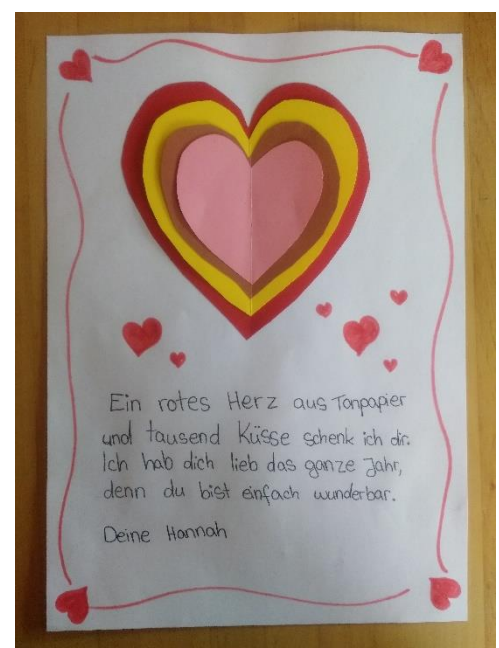 Ein rotes Herz aus Tonpapier
und tausend Küsse schenk ich dir.
Ich hab dich lieb das ganze Jahr,
denn du bist einfach wunderbar.
Deine Hannah